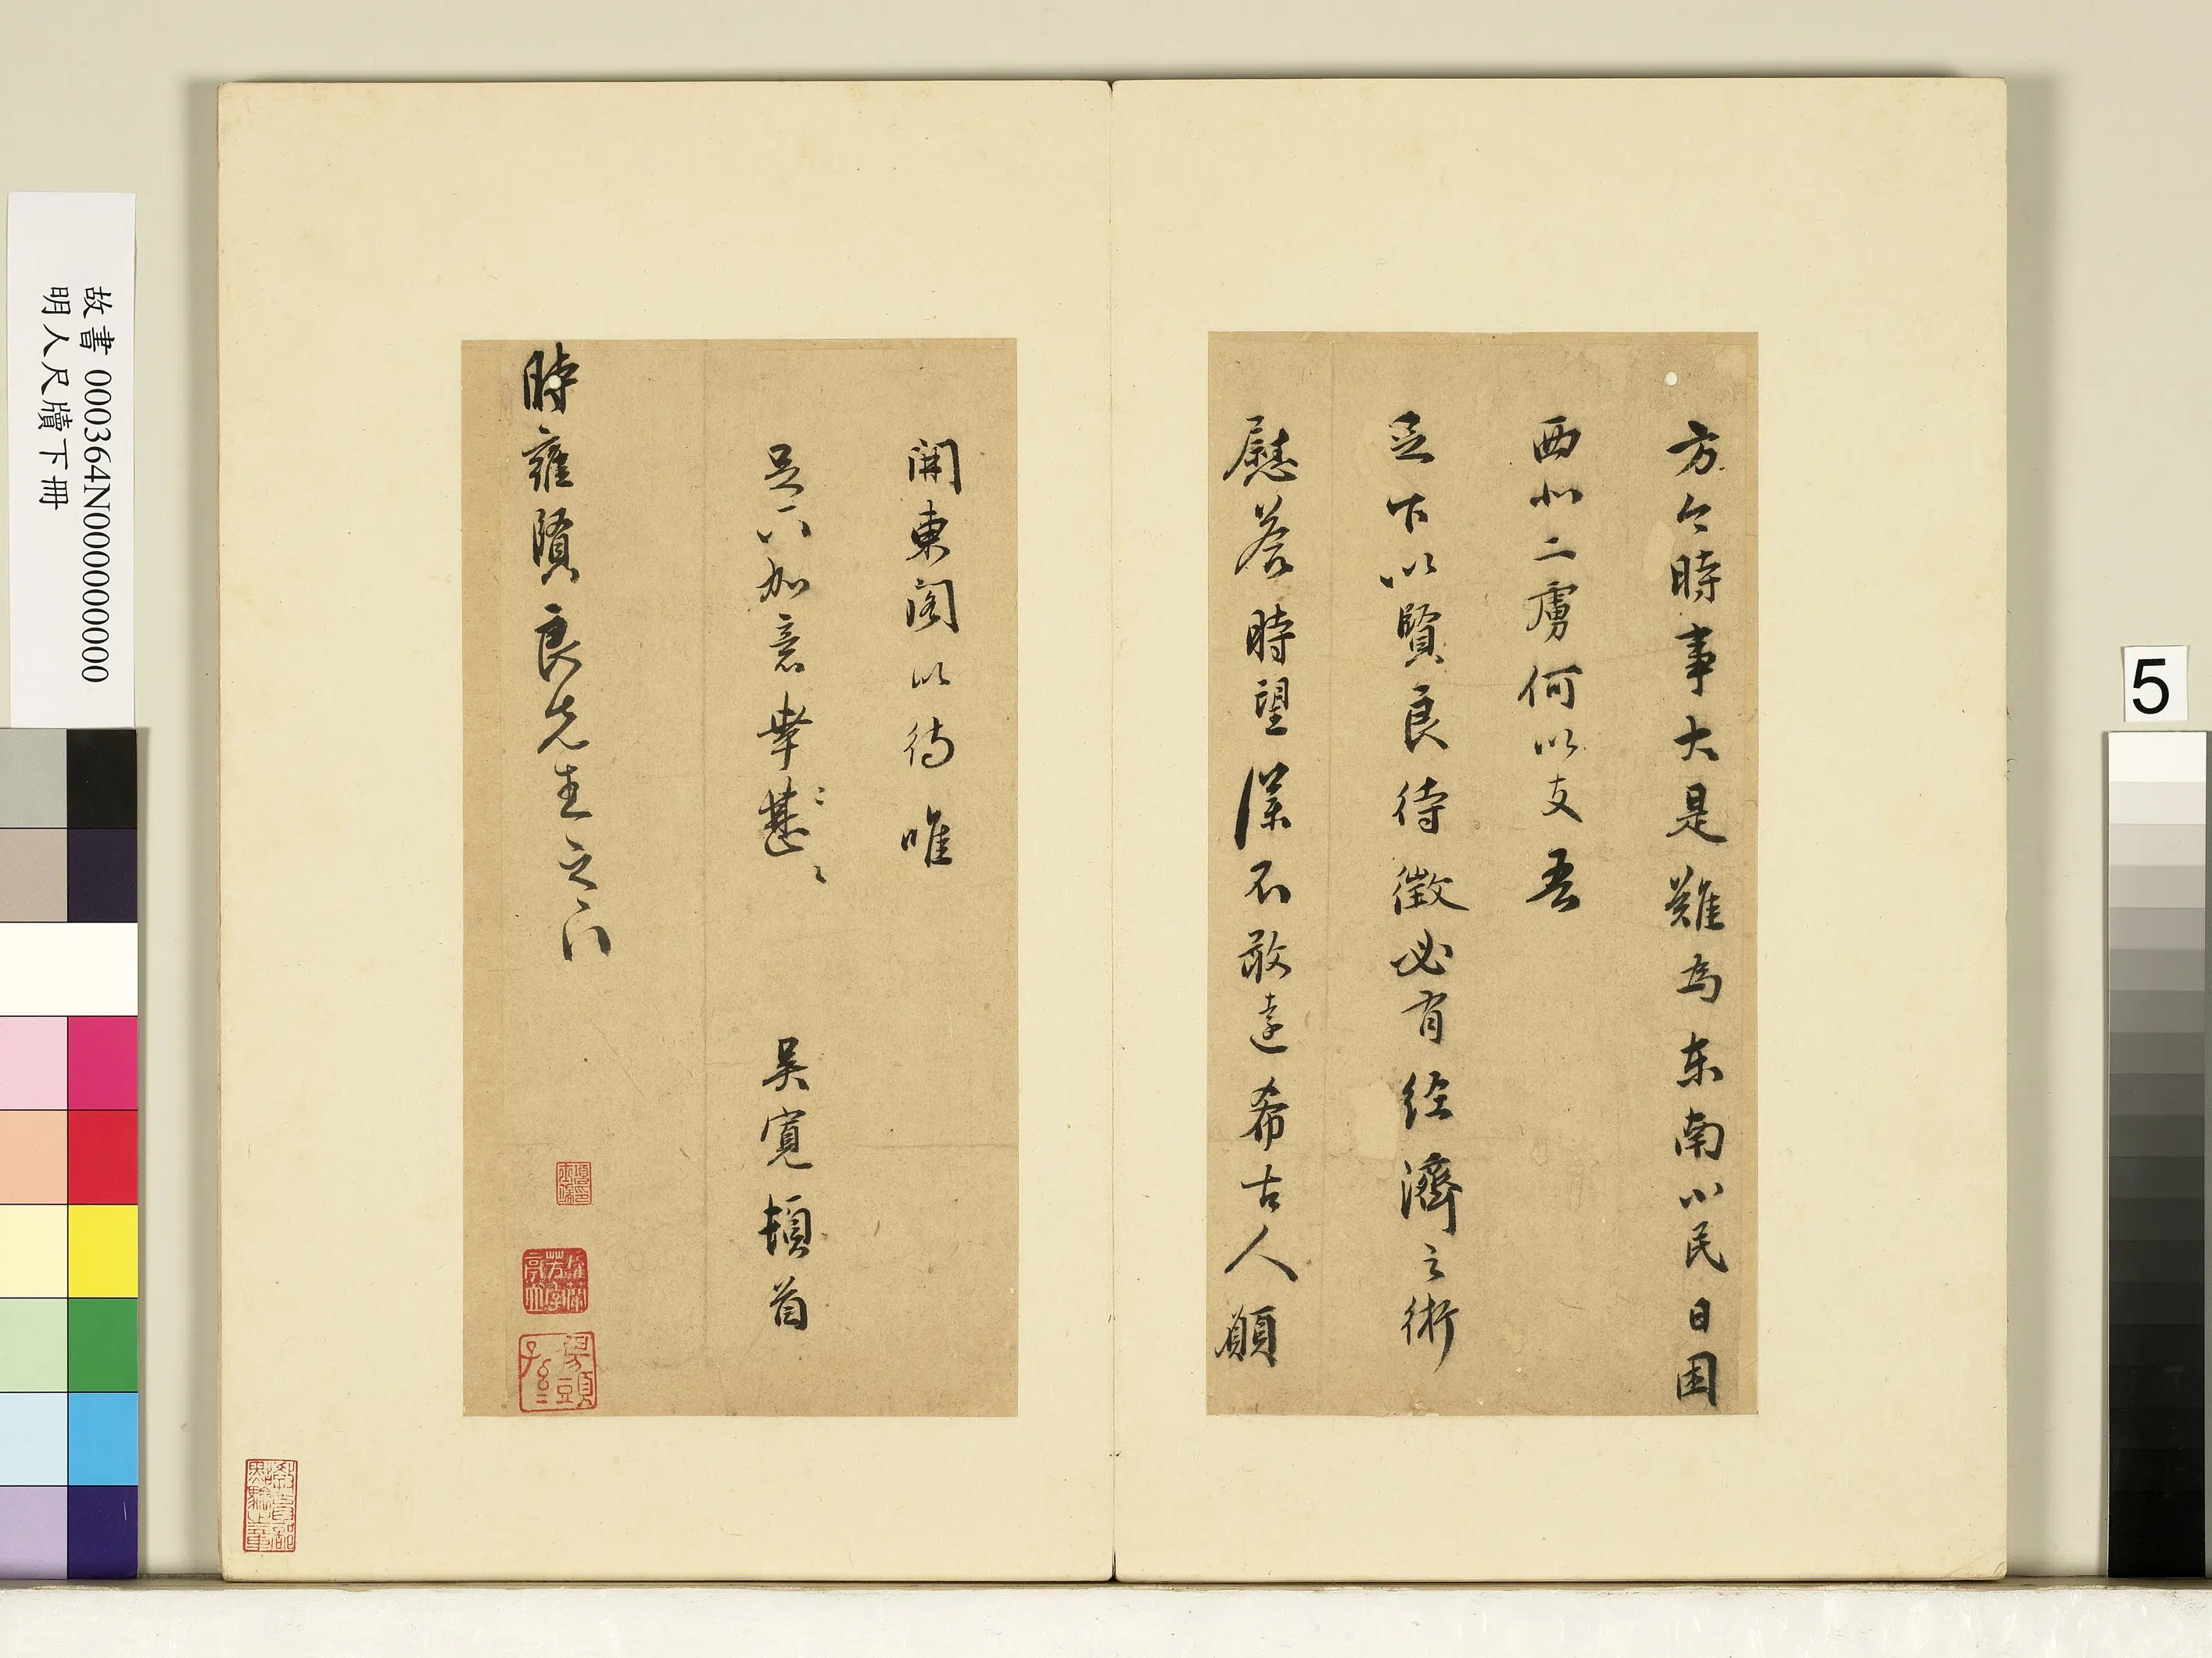 方今時事大是難為东南小民日困
西北二虜何以支吾
足下以賢良待徵必有经濟之術
慰答時望僕不敢遠希古人願
開東閣以待唯
足下加意幸甚〻
吳寬頓首
時雍賢良先生之門
故書 000364N000000000
明人尺牘下冊
5